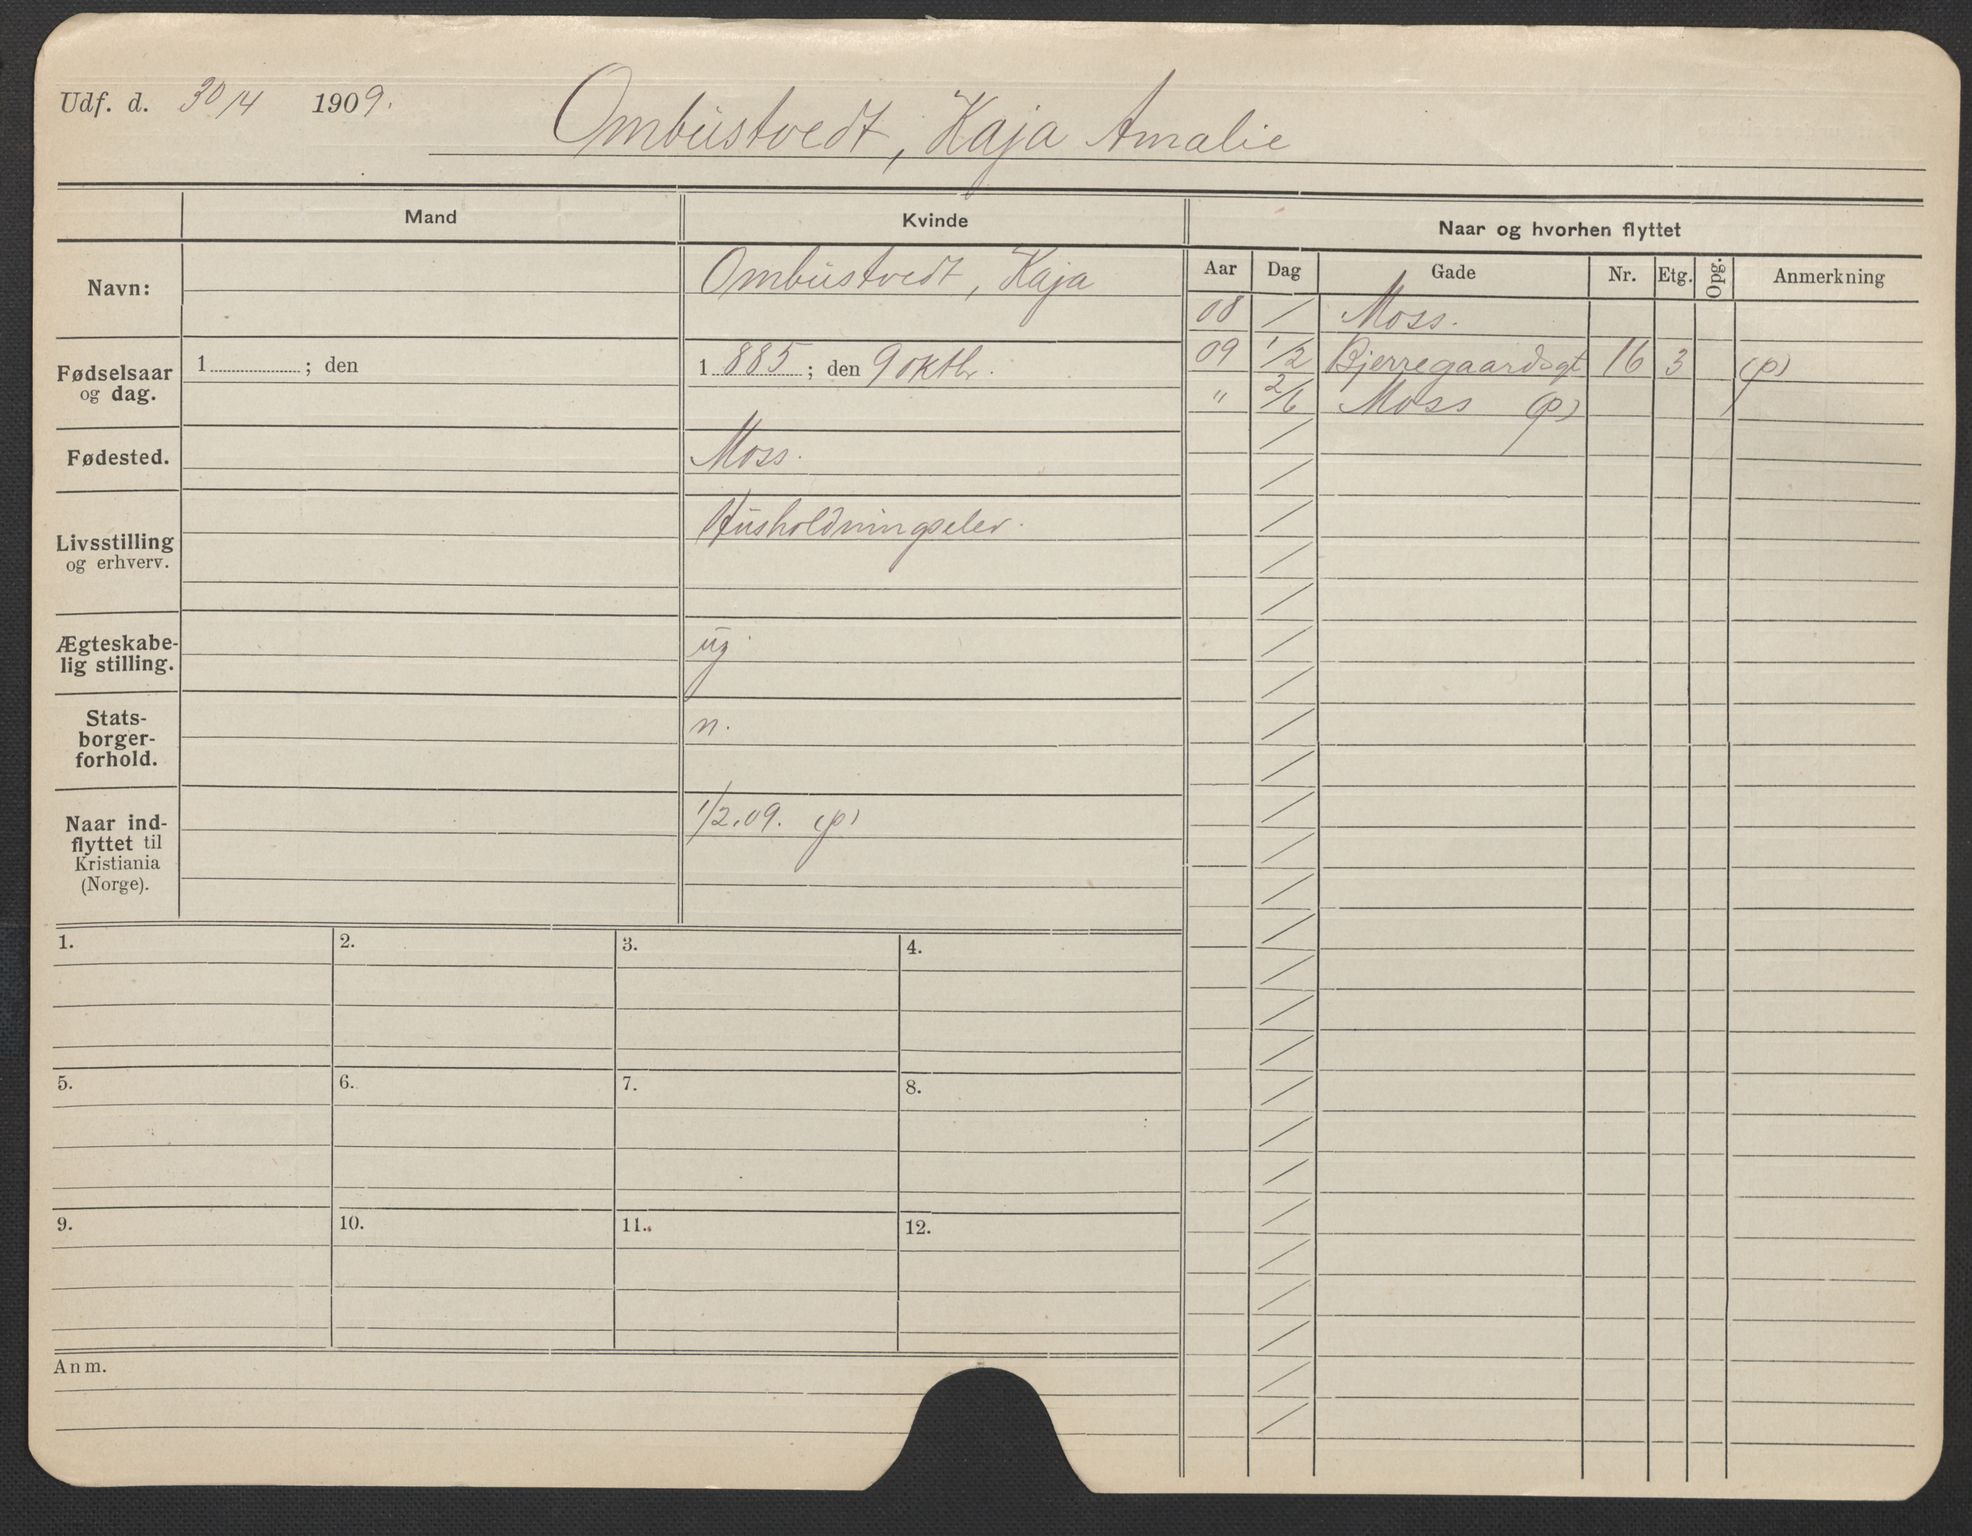 Udf. d. 30/4 1909.
Ombustvedt, Kaja Amalie
Mand
Kvinde
Naar og hvorhen flyttet
Navn:
Ombustvedt, Kaja
Fødselsaar
og dag.
1 ; den
1 885 ; den 9 oktbr.
Fødested.
Moss.
Livsstilling
og erhverv.
Husholdningselev.
Ægteskabe-
lig stilling.
ug
Stats-
borger-
forhold.
n.
Naar ind-
flyttet til
Kristiania
(Norge).
1/2.09. (p)
Aar Dag Gade Nr. Etg. Opg. Anmerkning
08 / Moss.
09 1/2 Bjerregaardsgt 16 3 (p)
" 2/6 Moss (p)
1. 2. 3. 4.
5. 6. 7. 8.
9. 10. 11. 12.
Anm.